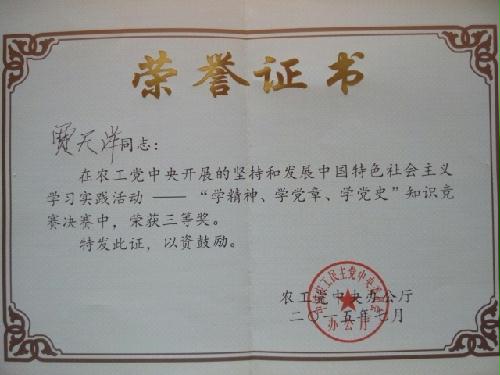 荣誉证书
贾天洋同志：
在农工党中央开展的坚持和发展中国特色社会主义
学习实践活动 —— “学精神、学党章、学党史”知识竞
赛决赛中，荣获三等奖。
特发此证，以资鼓励。
农工党中央办公厅
二〇一五年七月
办公厅